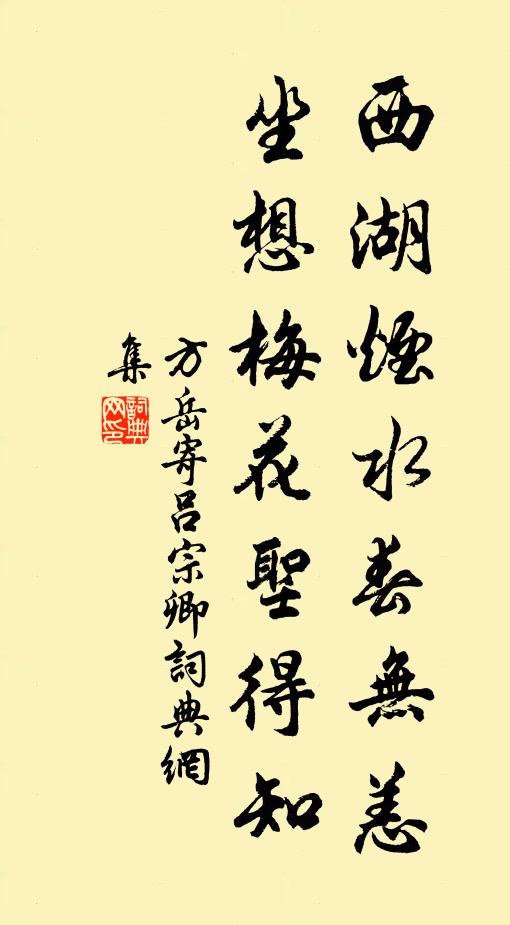 西湖煙水春無恙
坐想梅花聖得知
方岳寄呂宗卿詞典網
集
詞典
网印